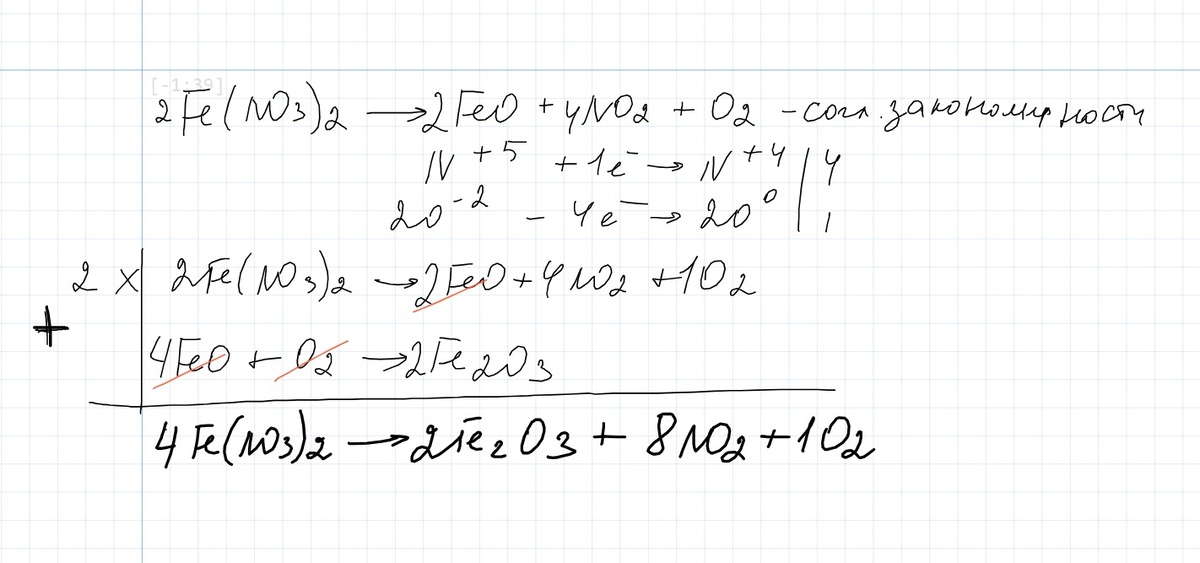 [-1:39]
2Fe(NO3)2 → 2FeO + 4NO2 + O2 - согл. закономерности
N+5 + 1e- → N+4 | 4
2O-2 - 4e- → 2O0 | 1
2 x | 2Fe(NO3)2 → 2FeO + 4NO2 + 1O2
+
4FeO + O2 → 2Fe2O3
4Fe(NO3)2 → 2Fe2O3 + 8NO2 + 1O2